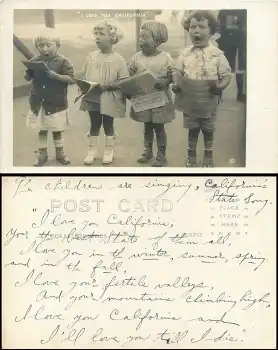 "I LOVE YOU CALIFORNIA"
The children are singing, California's
State Song.
POST CARD
"I love you California,
You're the best State of them all.
I love you in the winter, summer, spring
and in the fall.
I love your fertile valleys,
And your mountains climbing high,
I love you California and
I'll love you till I die."
PLACE
STAMP
HERE